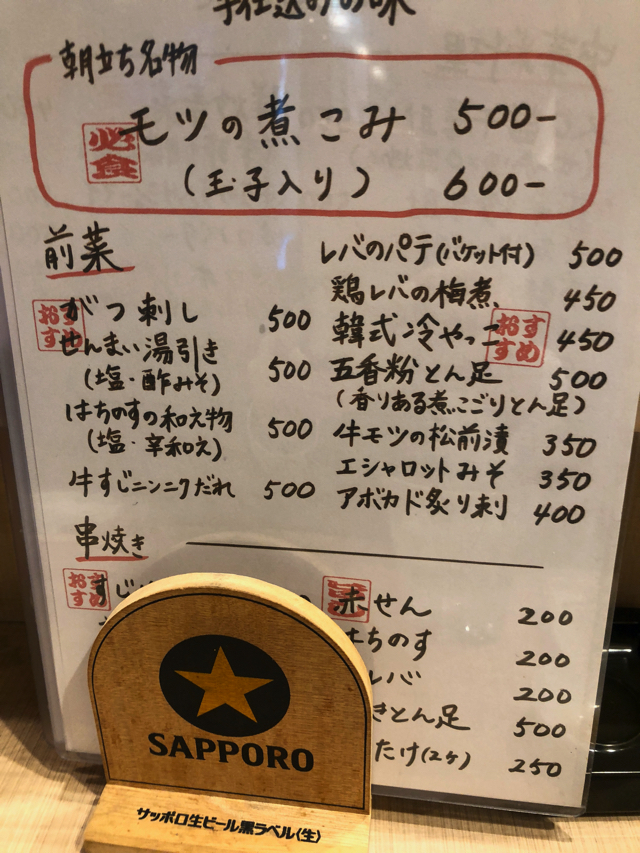 手仕込みの味
朝立ち名物
必食
モツの煮こみ 500-
(玉子入り) 600-
前菜
おすすめ
がつ刺し 500
せんまい湯引き 500
(塩・酢みそ)
はちのすの和え物 500
(塩・辛和え)
牛すじニンニクだれ 500
レバのパテ(バケット付) 500
鶏レバの梅煮 450
韓式冷やっこ 450
おすすめ
五香粉とん足 500
(香りある煮こごりとん足)
牛モツの松前漬 350
エシャロットみそ 350
アボカド炙り刺 400
串焼き
おすすめ
すじ
赤せん 200
はちのす 200
レバ 200
きとん足 500
たけ(2ヶ) 250
SAPPORO
サッポロ生ビール黒ラベル〈生〉